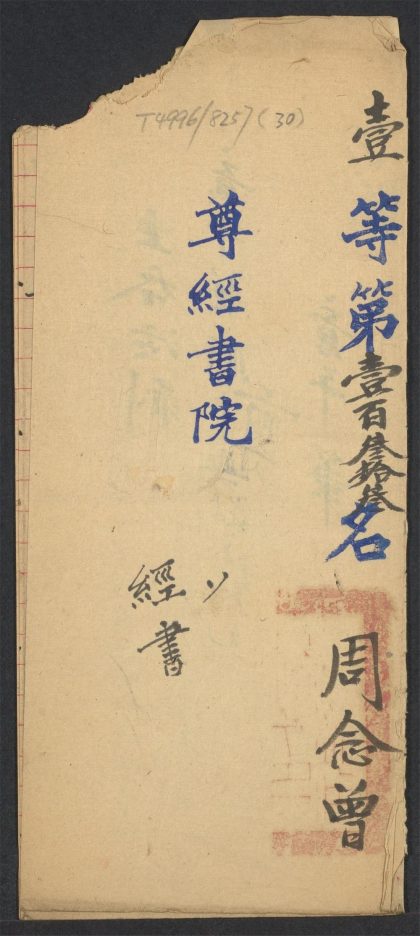 T4996/8257(30)
壹等第壹百叁拾叁名 周念曾
尊經書院
經書